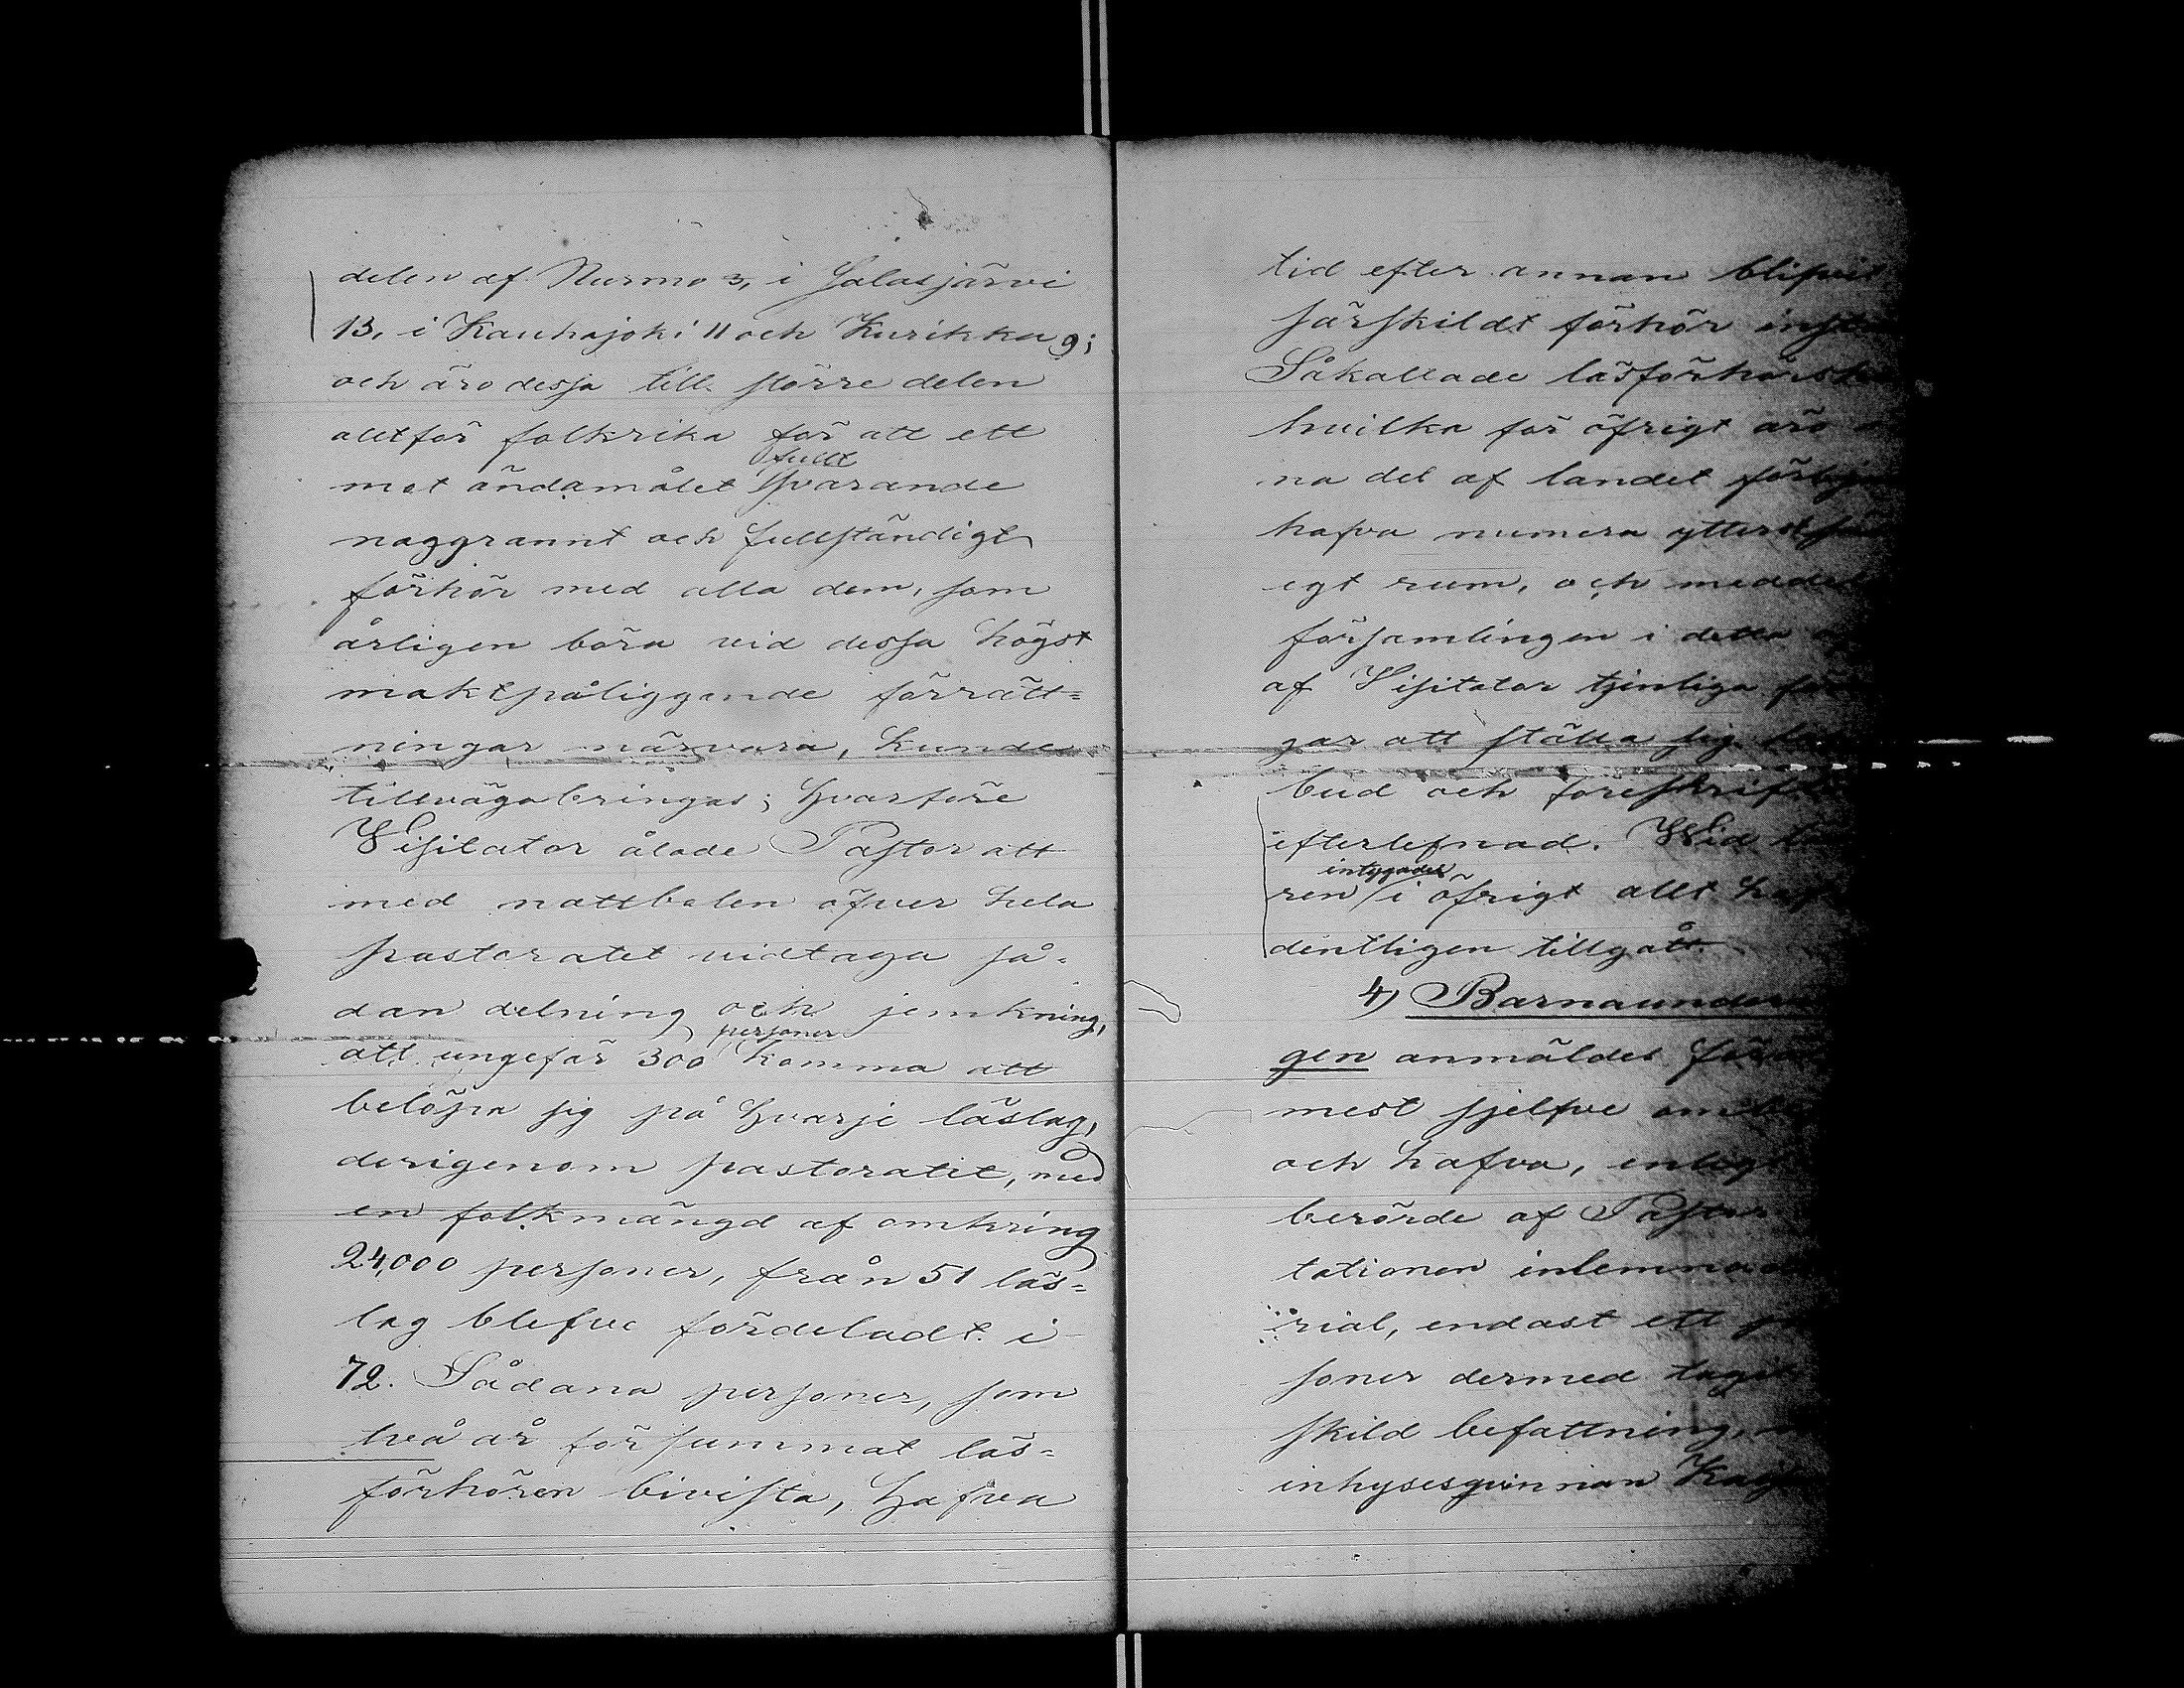 delen af Nurmo 3, i Jalasjärvi
13, i Kauhajoki 11 och Kurikka 9;
och äro dessa till större delen
alltför folkrika för att ett
fullt
mot ändamålet svarande
noggrannt och fullständigt
förhör med alla dem, som
årligen böra vid dessa högst
maktpåliggande förrätt=
ningar närvara, kunde
tillvägabringas; hvarföre
Visitator ålade Pastor att
med nattbolen öfver hela
pastoratet vidtaga så-
dan delning och jemkning,
personer
att ungefär 300 komma att
belöpa sig på hvarje läslag,
derigenom pastoratet, med
en folkmängd af omkring
24,000 personer, från 51 läs=
lag blefve fördeladt i
72. Sådana personer, som
två år försummat läs=
förhören bivista, hafva
tid efter annan blifvit
särskildt förhör
Såkallade
hvilka för öfrigt äro
na del af landet
hafva numera ytterst
egt rum, och
församlingen i detta
af Visitator tjenliga
gar att ställa sig
bud och
efterlefnad. Wid
intygades
ren i öfrigt allt
dentligen tillgått.
4) Barnaunder
gen anmäldes
mest sjelfve
och hafva, enligt
berörde af Pastor
tationen
rial, endast ett
soner dermed
skild befattning,
inhysesqvinnan